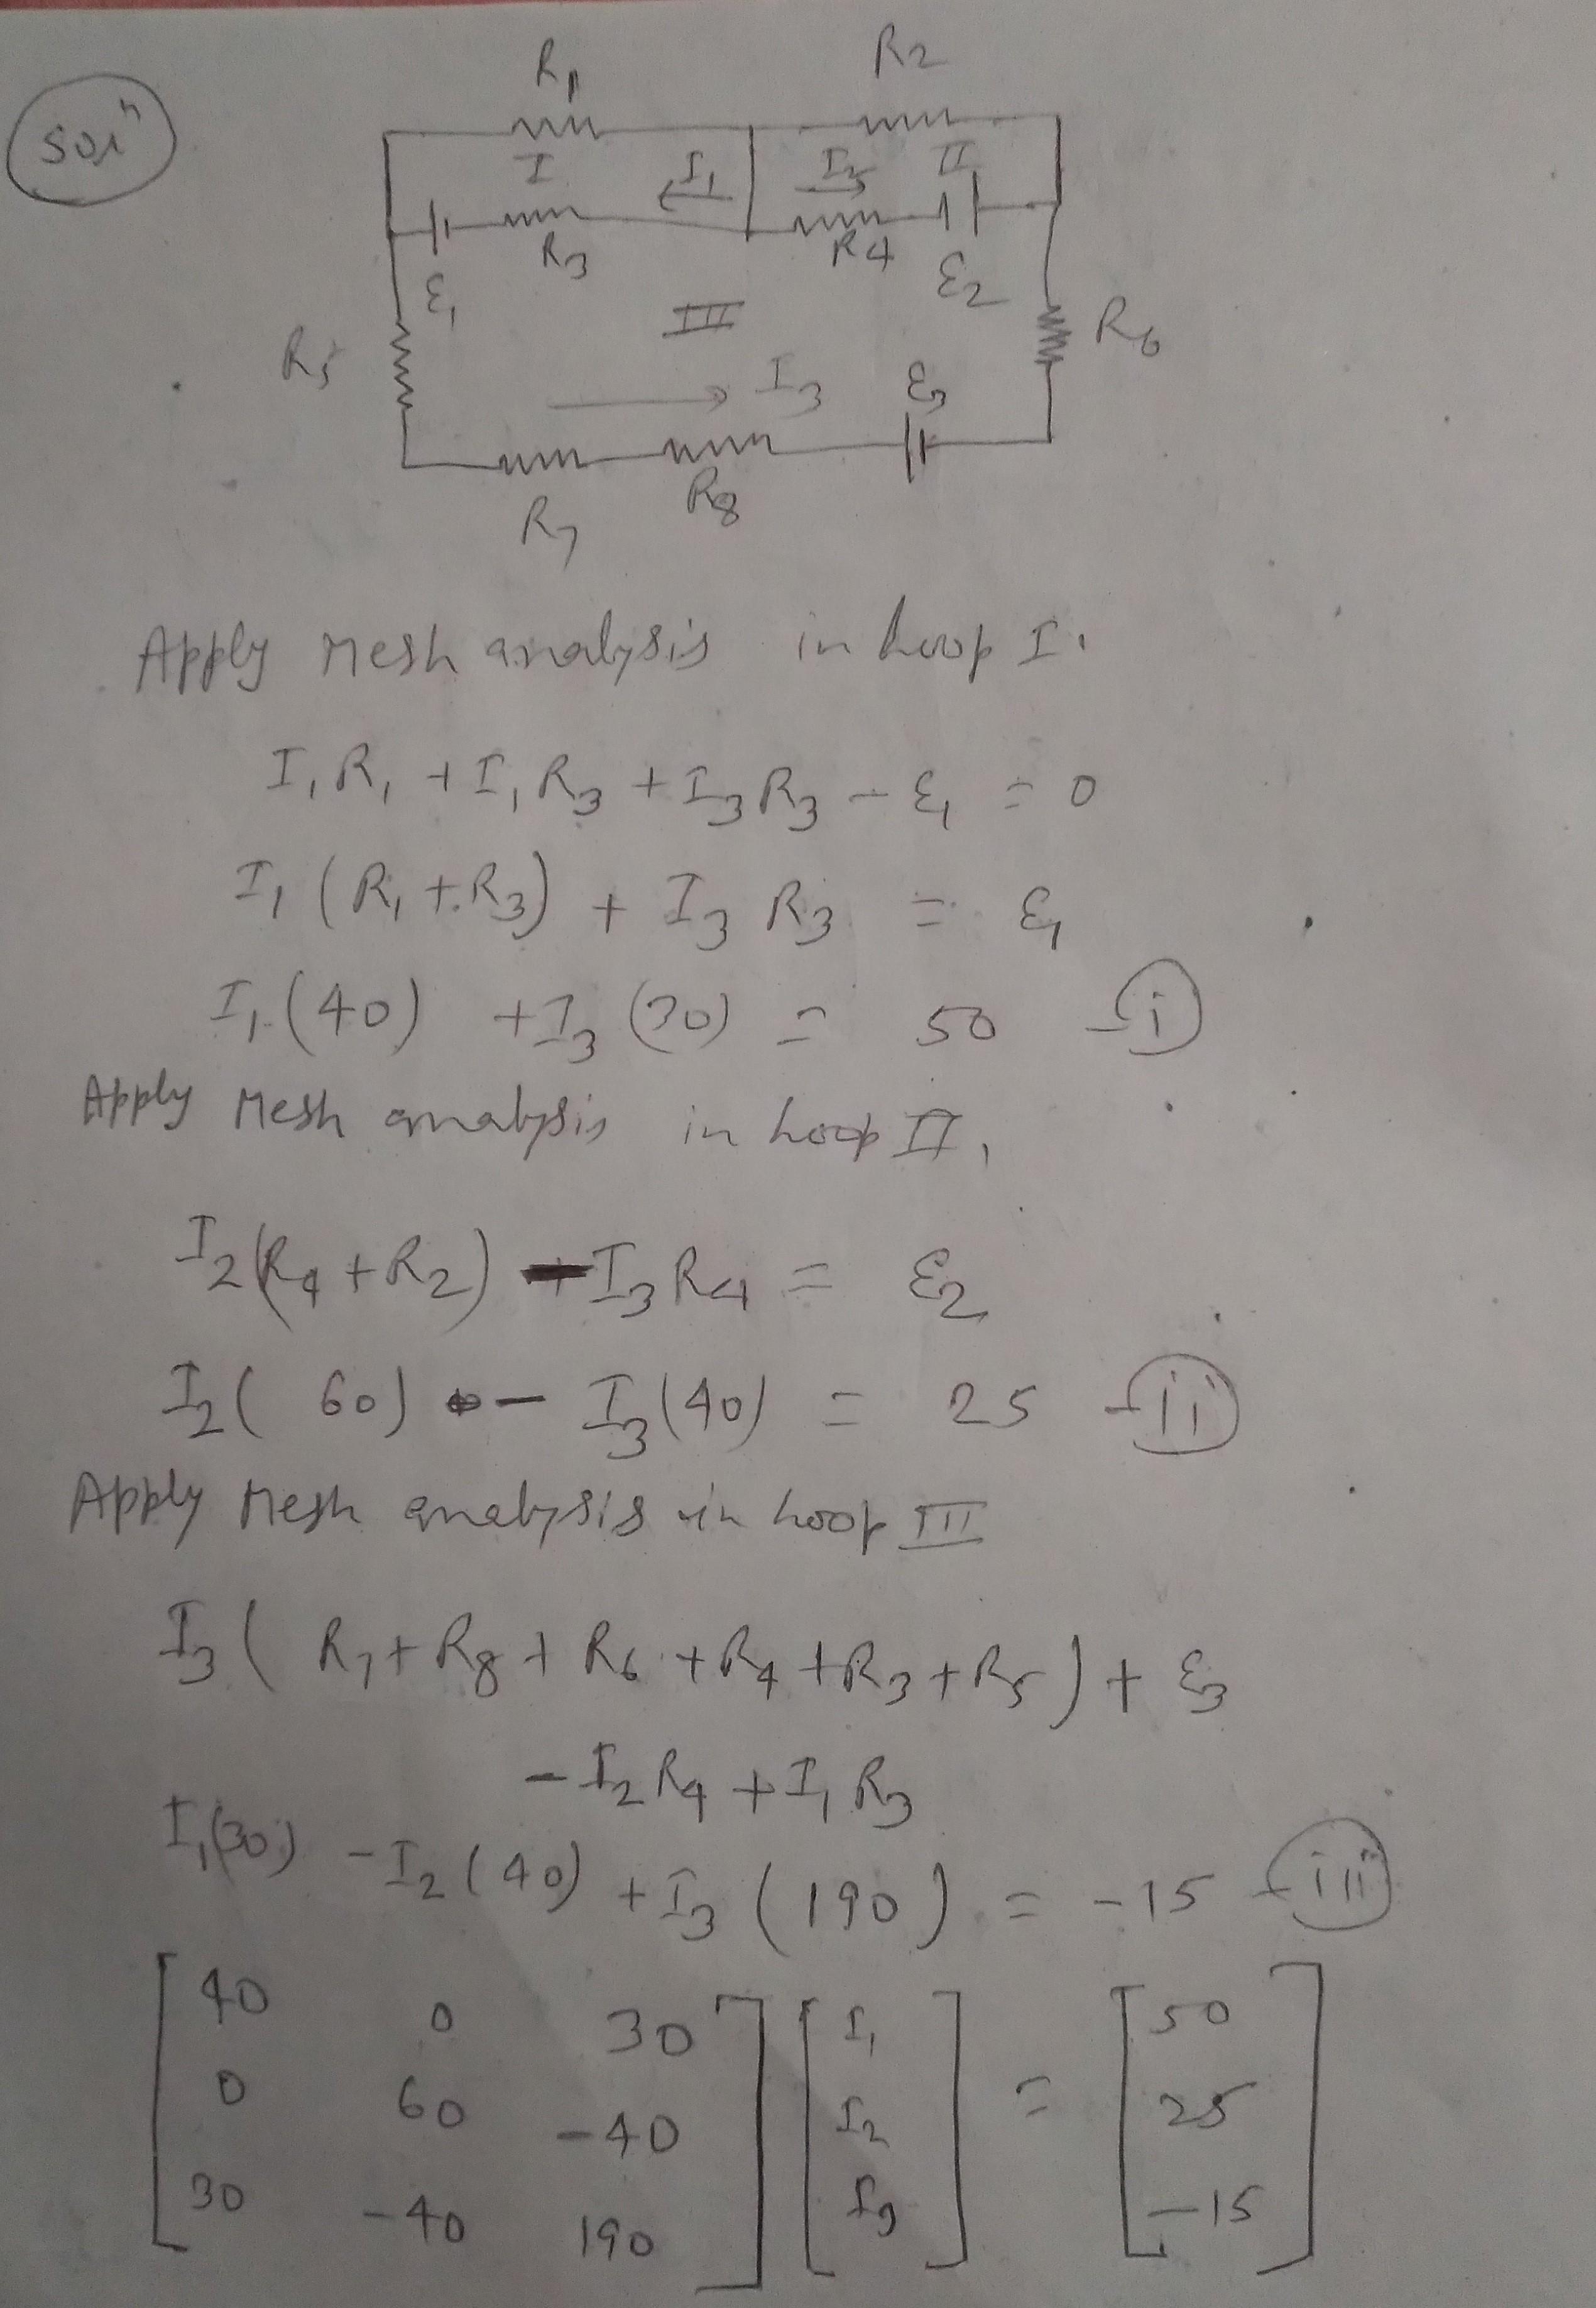 Solⁿ
R₁ R₂
I I₁ I₂ II
R₃ R₄
ε₁ ε₂
III
R₅ R₆
I₃ ε₃
R₇ R₈
Apply Mesh analysis in Loop I.
I₁R₁ + I₁R₃ + I₃R₃ - ε₁ = 0
I₁(R₁+R₃) + I₃R₃ = ε₁
I₁(40) + I₃(30) = 50 -(i)
Apply Mesh analysis in Loop II,
I₂(R₄+R₂) - I₃R₄ = ε₂
I₂(60) - I₃(40) = 25 -(ii)
Apply Mesh analysis in Loop III
I₃(R₇+R₈+R₆+R₄+R₃+R₅) + ε₃
- I₂R₄ + I₁R₃
I₁(30) - I₂(40) + I₃(190) = -15 -(iii)
[40 0 30] [I₁] = [50]
[0 60 -40] [I₂] [25]
[30 -40 190] [I₃] [-15]